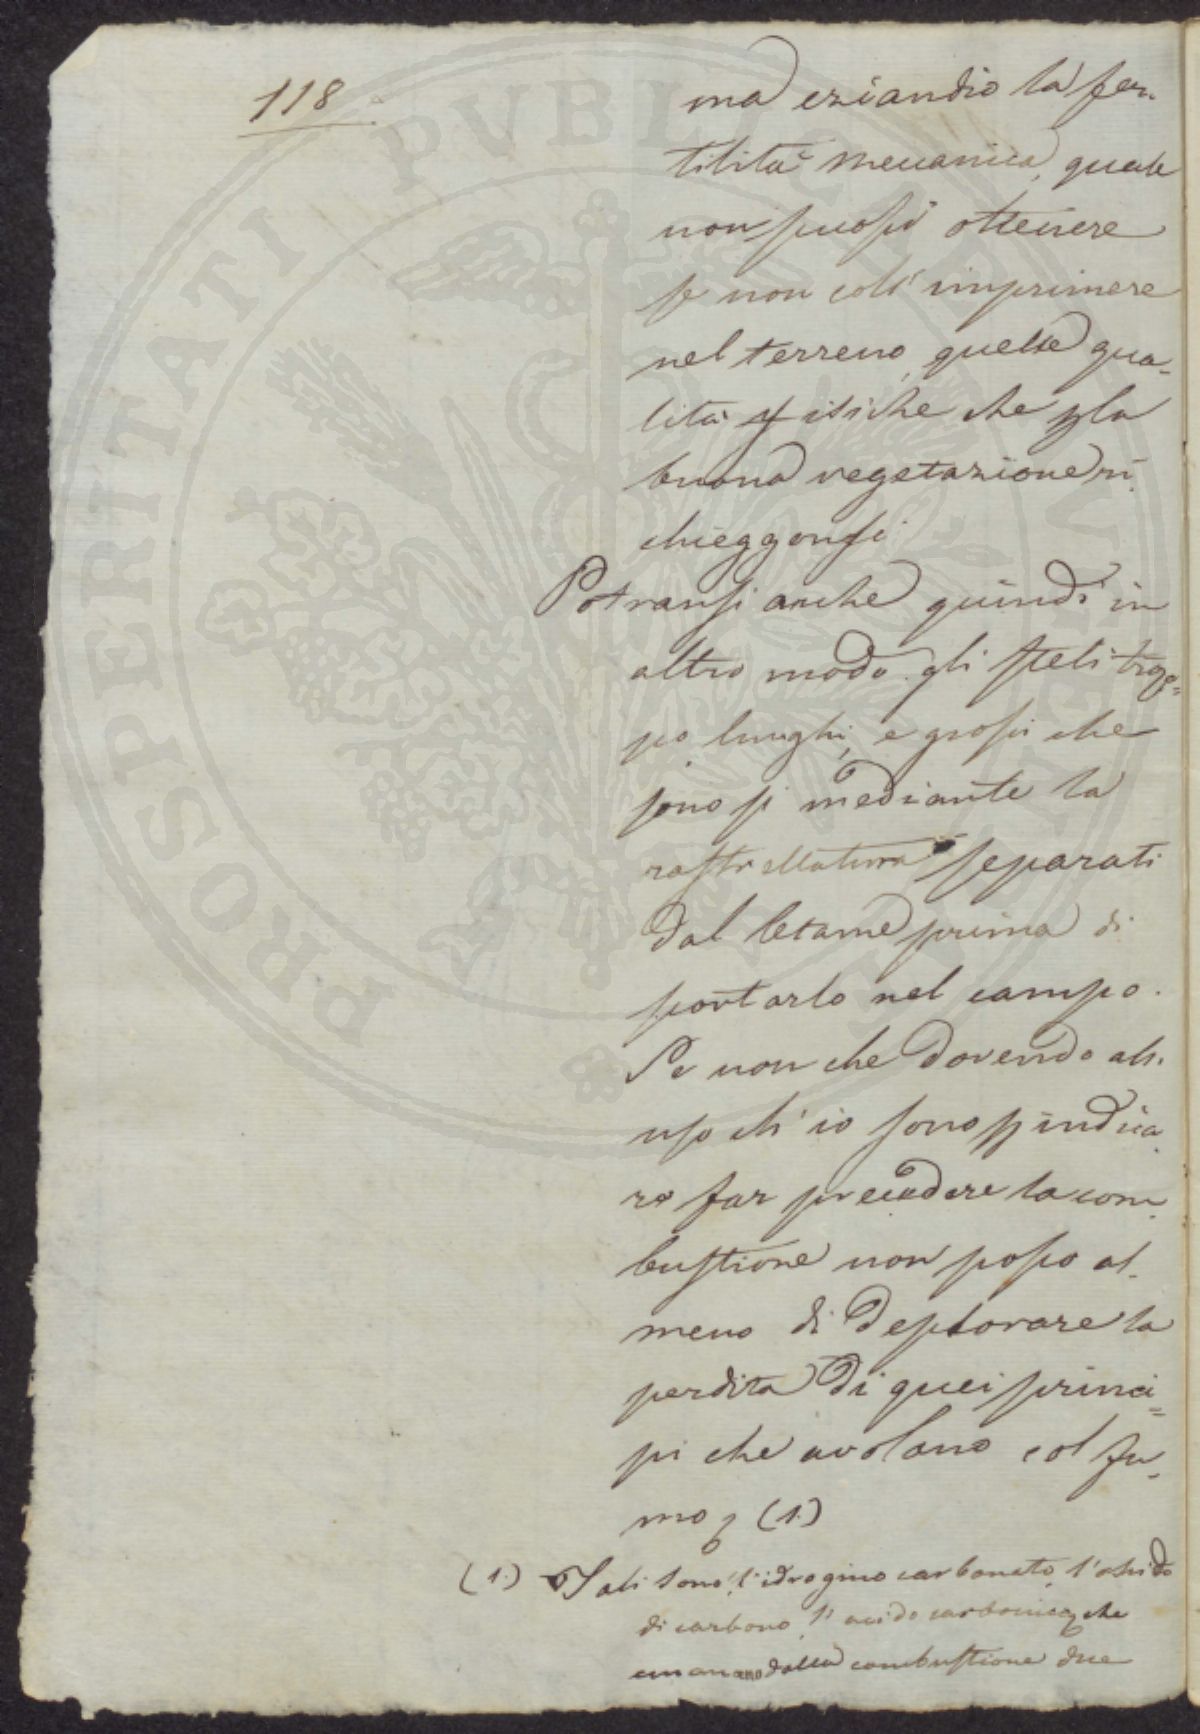 118
ma eziandio la fer-
tilità meccanica, quale
non puossi ottenere
se non coll' imprimere
nel terreno, quelle qua-
lità fisiche che p la
buona vegetazione ri-
chieggonsi
Potransi anche quindi in
altro modo gli steli trop=
po lunghi, e grossi che
sono si mediante la
rastrellatura separati
dal letame prima di
portarlo nel campo.
Se non che dovendo al-
uso ch' io sono p indica-
re far precedere la com-
bustione non posso al-
meno di deplorare la
perdita di quei princi=
pi che avolano col fu-
mo, (1.)
(1.) Tali sono, l' idrogino carbonato, l' ossido
di carbono, l' acido carbonico, che
emanano dalla combustione due
PROSPERITATI PVBLICAE